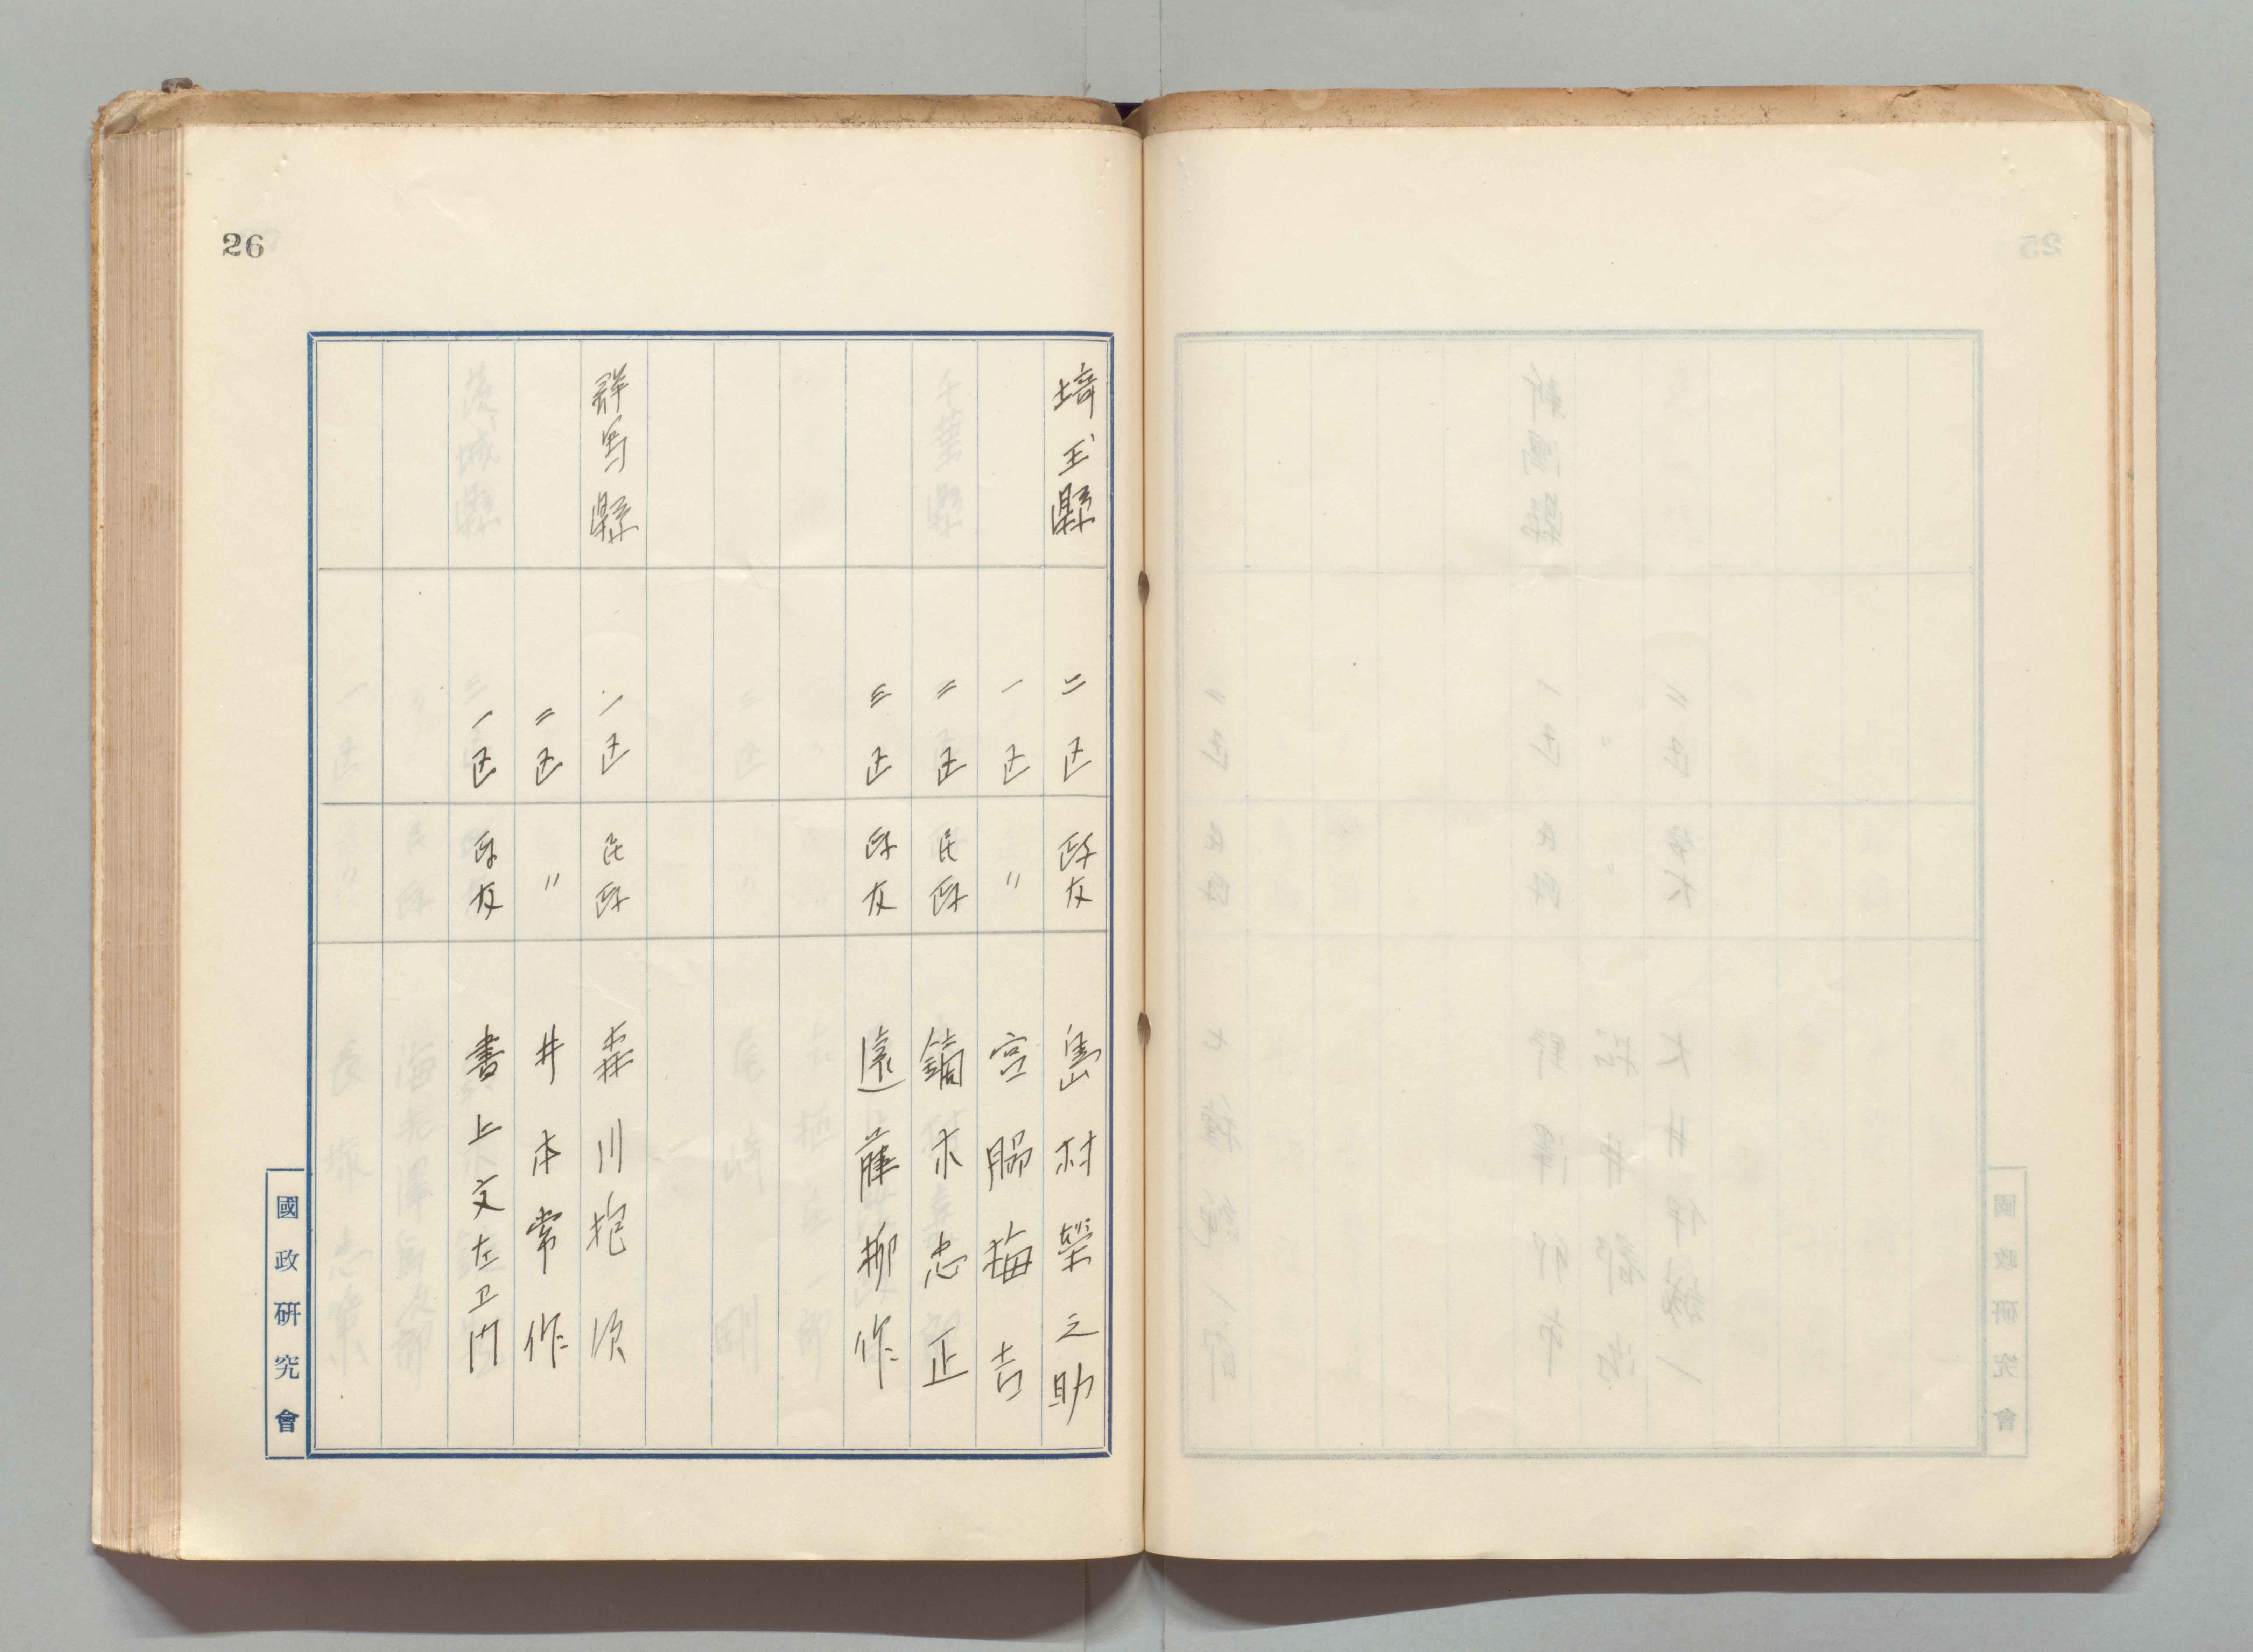 26
埼玉縣 二区 政友 島村榮之助
一区 〃 宮脇梅吉
二区 民政 鏑木忠正
三区 政友 遠藤柳作
群馬縣 一区 民政 森川抱次
二区 〃 井本常作
一区 政友 書上文左エ門
國政研究會